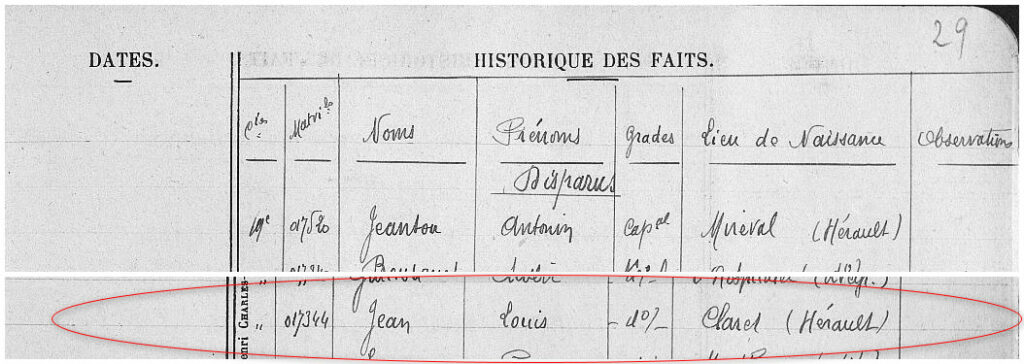 29
DATES. HISTORIQUE DES FAITS.
Cies Matriles Noms Prénoms Grades Lieu de Naissance Observations
Disparus
19e 017520 Jeantou Antonin Capal Mireval (Hérault)
" 017344 Jean Louis - do/- Claret (Hérault)
enri CHARLES-